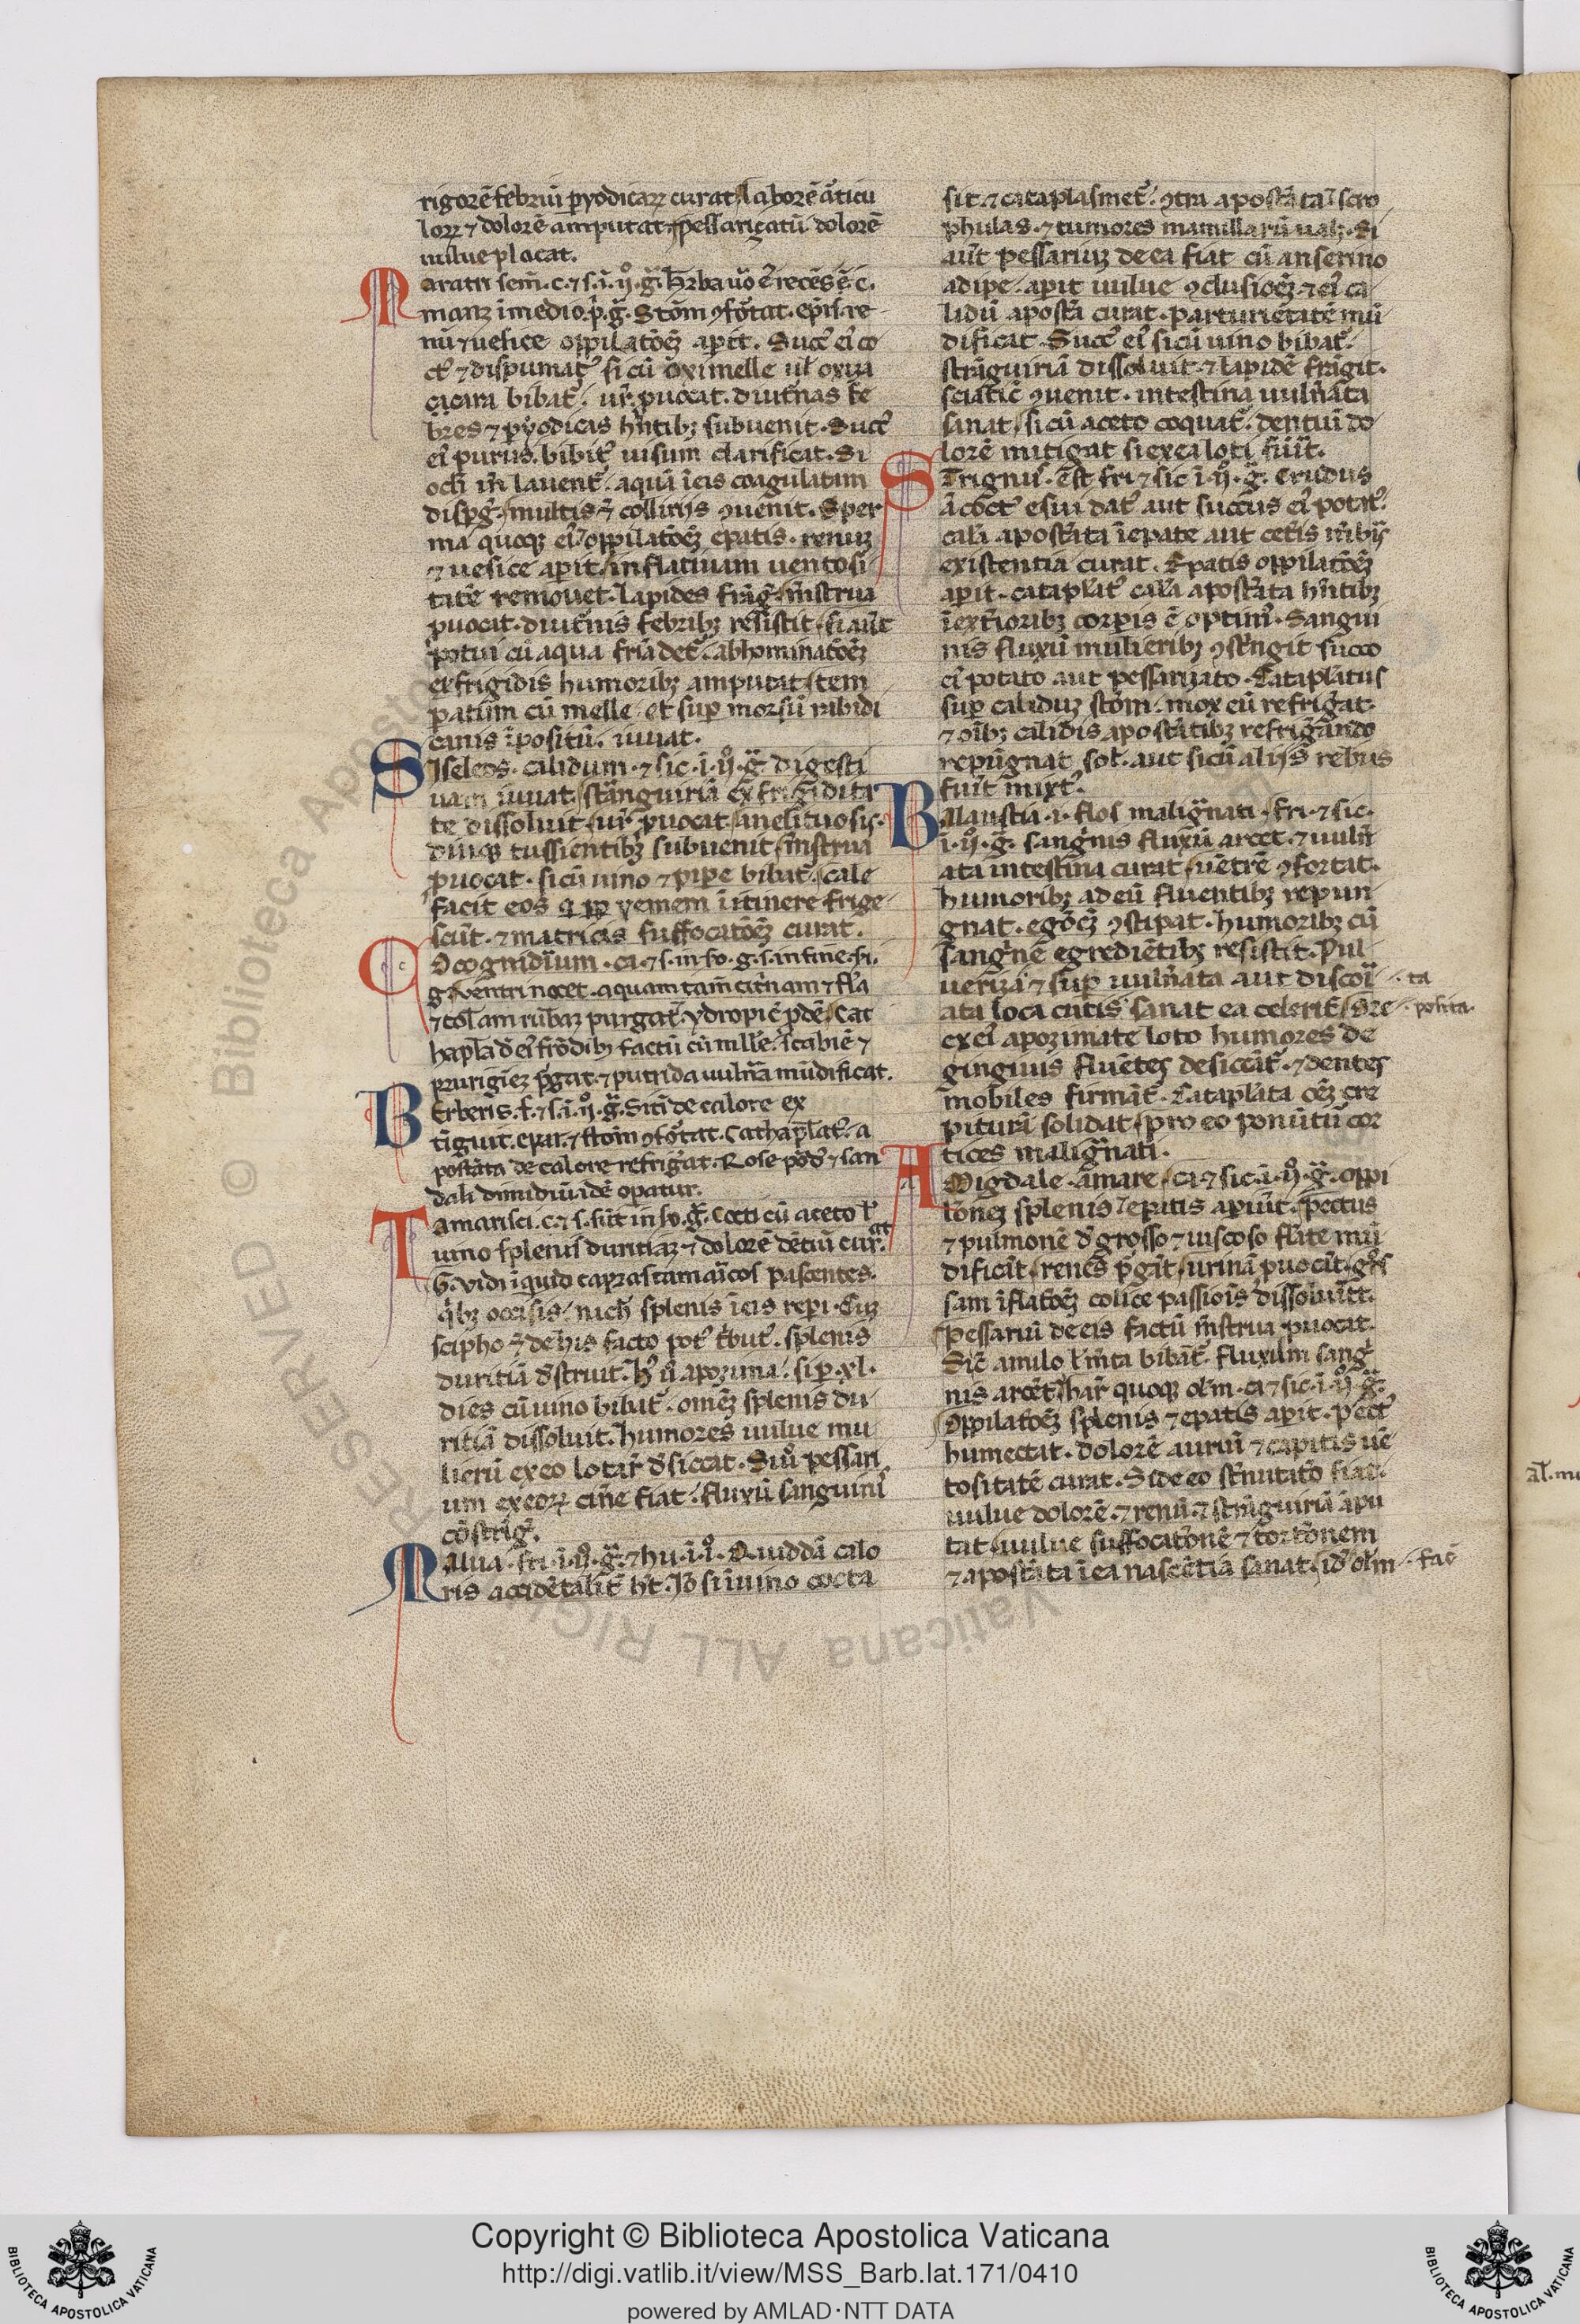 rigorē febriū p̱yodicaꝝ curat laborē āticu
loꝝ ⁊ dolorē amputat. pessarizatū dolorē
uulue placat.
Maratri sem̄. c. ⁊ s. ī. ij°. g̃. h̄ba u° ē recēs ē. c.
manꝫ ī medio. p̄. g̃. Stōm ꝯfōtat. epīs. re
nū ⁊ uesice oppilatōēꝫ apit. Succꝰ eiꝰ co
ctꝰ ⁊ dispumatꝰ si cū oximelle ul̄ oxiza
cicara bibat᷑. ur̄. ꝓuocat. diut̄nas fe
bres ⁊ p̱yodicis hn̄tibꝫ subuenit. Succꝰ
eiꝰ purus. bibitꝰ uisum clarificat. Si
oc̄li īn lauent᷑. aquā ī eis coagulatam
disp̱g̃. multis ī colliriis ꝯuenit. Sper
ma quoqꝫ eiꝰ oppilatōēꝫ epatis. renuꝫ
⁊ uesice aperit. inflatiuam uentosi
tatē remouet. lapides frāg̃. mēstrua
ꝓuocat. diut̄nis febribꝫ resistit. si aūt
potui cū aqua fri᷑a det᷑. abhominatōēꝫ
ex frigidis humoribꝫ amputat. tem
patum cū melle. et sup morsū rabidi
canis īpositū. iuuat.
Siseleos. calidum. ⁊ sic. ī. ij°. g̃. digesti
uam iuuat. strāguiriā ex frigidita
te dissoluit. ur̄. ꝓuocat. anelituosis.
diuqꝫ tussientibꝫ subuenit. mēstrua
ꝓuocat. si cū uino ⁊ pipe bibat᷑. cale
facit eos q̄ ꝑꝑ yemem ī itinere frige
scūt. ⁊ matricis suffocatōēꝫ curat.
Cocognidium. ca. ⁊ s. in ıo. g. s. in fine. si.
g. uentri nocet. aquam tam̄ citrinam ⁊ fla
⁊ col̄am rub̄aꝫ purgat. ydropicꝭ pdē. Cat
hapla d̄ eiꝰ frōdibꝫ factū cū mll̄e. scabiē ⁊
prurigiēꝫ p̱gat. ⁊ putrida uuln̄a mūdificat.
Berberis. f. ⁊ s. ī. ij°. g̃. Sitī de calore ex
tīguit. epar. ⁊ stōm ꝯfōtat. Cathaplat᷑. a
postāta de calore refrigat. Rose pōdꝰ ⁊ san
dali dimidiū idē opatur.
Tamarisci. c. ⁊ s. sūt in ıo. g̃. Cocti cū aceto l᷑
uino splenis duritiaꝫ ⁊ dolorē dētiū curāt.
G. uidi īquid capras tamaīcos pascentes.
q̄bꝫ occisis. nich̄ splenis ī eis repi. Cuꝫ
scipho ī de his facto potꝰ t̄but᷑. splenis
duritiā dstruit. h̄ ū apozima. si p. xl.
dies cū uino bibat᷑. omēꝫ splenis du
ritiā dissoluit. humores uulue mu
lierū ex eo lotar̄ dsiccat. Siu° pessari
um ex eoꝝ cine fiat. fluxū sanguinis
cōstrig̃.
Malua. fri. ī. ij°. g̃. ⁊ hu. ī. i°. Quiddā calo
ris accidētalit̄ h̄t. Jō si ī uino cocta
sit. ⁊ cataplasmet᷑. ꝯtra apostāta ⁊ scro
phulas. ⁊ tumores mamillarū ualꝫ. Si
aūt pessariuꝫ de ea fiat cū anserino
adipe. apit uulue ꝯclusiōēꝫ. ⁊ eiꝰ ca
lidū apostā curat. parturiētatē mū
dificat. Succꝰ eiꝰ si cū uino bibat᷑.
strāguiriā dissoluit. ⁊ lapidē frāgit.
sciaticꝭ ꝯuenit. intestina uuln̄ata
sanat. si cū aceto coquat᷑. dentiū do
lorē mitigat si ex ea loti fūīt.
Strignus. est fri ⁊ sic. ī. ij°. g̃. Crudus
a᷑ coctꝰ esui datꝰ aut succus eiꝰ potatꝰ.
cala apostāta ī epate aut cetis mēbrꝭ
existentia curat. Epatis oppilatōēꝫ
apit. cataplatꝰ cala apostāta hn̄tibꝫ
ī ext̄ioribꝫ corpis ē optimꝰ. Sangui
nis fluxū mulieribꝫ ꝯstrīgit succo
eiꝰ potato aut pessarizato. Cataplatus
sup caliduꝫ stōm. mox eū refrigat.
⁊ oībꝫ calidis apostātibꝫ refrigando
repugnat. solꝰ. aut si cū aliis rebus
fuīt mixtꝰ.
Balaustia. i. flos malignati. fri. ⁊ sic.
ī. ij°. g̃. sanguis fluxū arcet. ⁊ uuln̄
ata intestina curat. uētrē ꝯfortat.
humoribꝫ ad eū fluentibꝫ repun
gnat. egōēꝫ ꝯstipat. humoribꝫ cū
sanguīe egrediētibꝫ resistit. Pul
uerizata ⁊ sup uuln̄ata aut discoī
· ta
ata loca cutis sanat ea celerit̄. Ore
· posita.
ex eiꝰ apozimate loto humores de
gingiuis fluētes desiccāt᷑. ⁊ dentes
mobiles firmāt᷑. Cataplata oēꝫ cre
pitura solidat. pro eo ponūt᷑ cor
tices malignati.
Amigdale. amare. ca ⁊ sic. ī. ij°. g̃. oppi
latōnēꝫ splenis ⁊ epatis apiūt. pectus
⁊ pulmonē d̄ grosso ⁊ uiscoso flate mū
dificāt. renes p̱gāt. urinā ꝓuocāt. gros
sam īflatōēꝫ colice passiōis dissoluūt.
Pessariū de eis factū mēstrua ꝓuocat.
Sic amilo l᷑ mēta bibāt᷑. fluxum sang̃
nis arcēt. har̄ quoqꝫ olm. ca ⁊ sic. ī. ij°. g̃.
Oppilatōēꝫ splenis ⁊ epatis apit. Pectꝰ
humectat. dolorē auriū ⁊ capitis uē
tositatē curat. Si de eo st̄nutatō fiat.
uulue dolorē. ⁊ renū. ⁊ strāguiriā apu
tat. uulue suffocatōnē ⁊ tortōnem
⁊ apostāta ī ea nascētia sanat. id olm
· fac̄
Copyright © Biblioteca Apostolica Vaticana
http://digi.vatlib.it/view/MSS_Barb.lat.171/0410
powered by AMLAD·NTT DATA